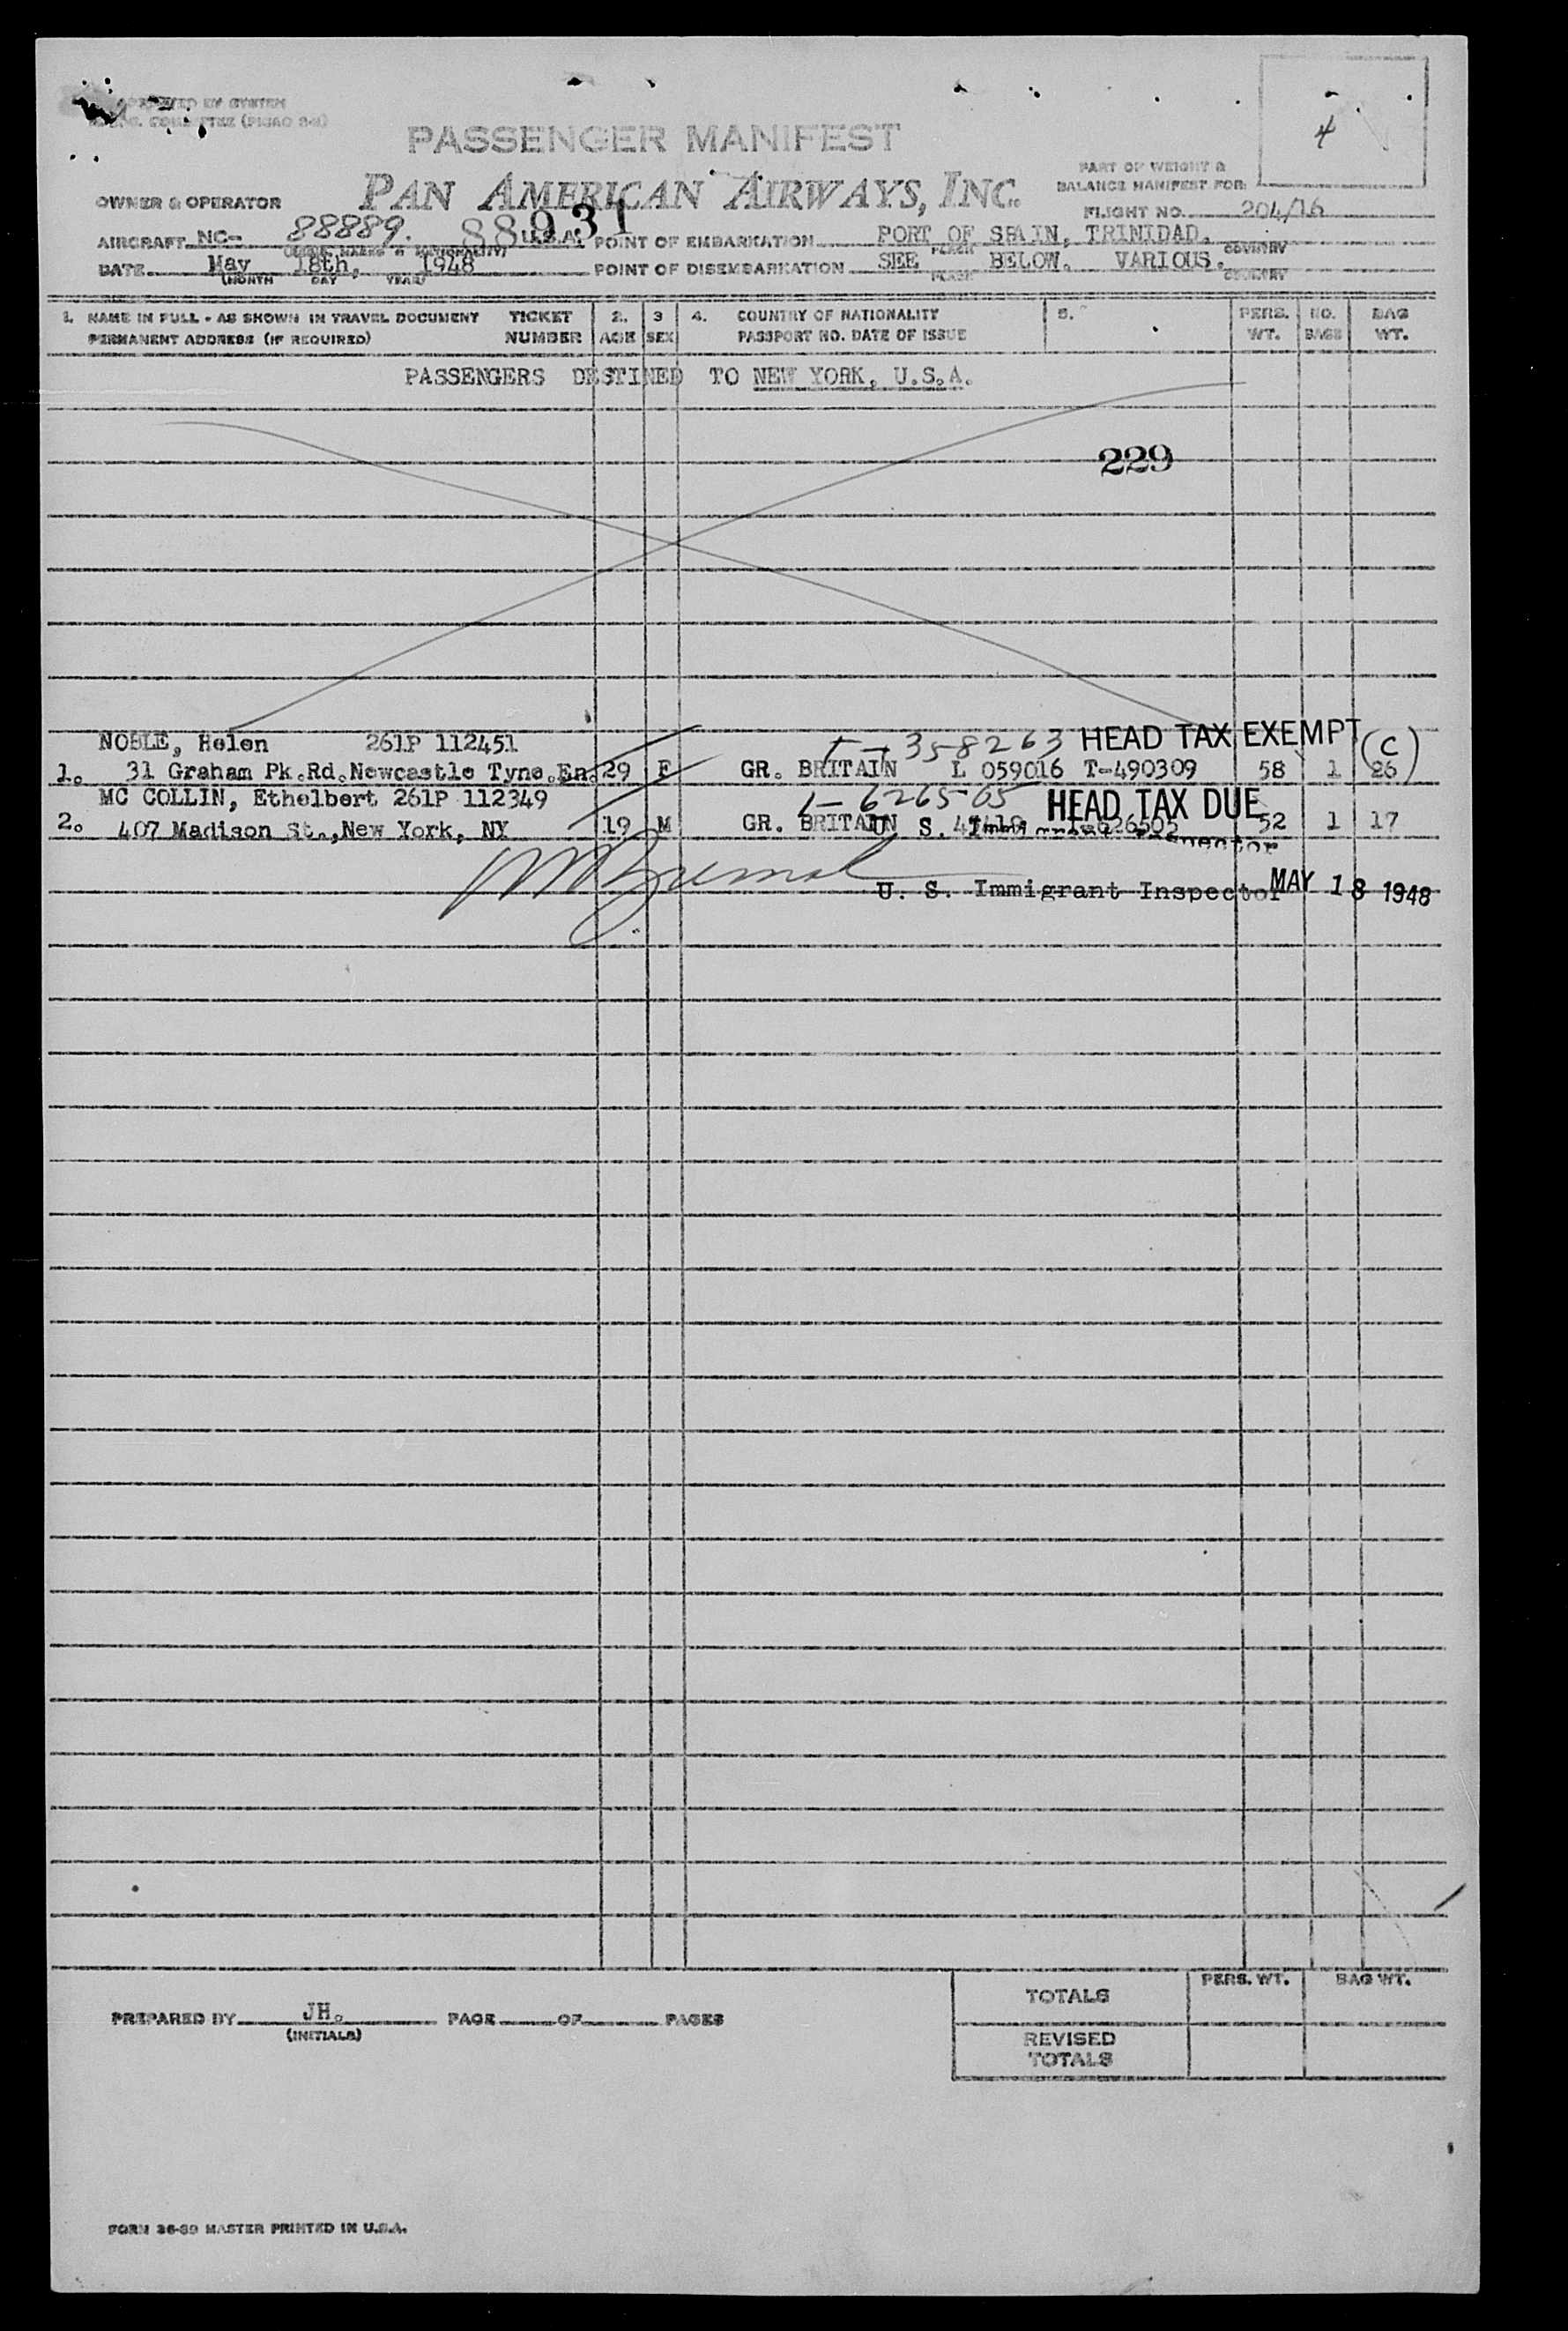 APPROVED BY SYSTEM
COMMITTEE (PICAO 3-3)
4
PASSENGER MANIFEST
PART OF WEIGHT &
BALANCE MANIFEST FOR:
OWNER & OPERATOR PAN AMERICAN AIRWAYS, INC.
FLIGHT NO. 204/16
AIRCRAFT NC- 88889. 88931 U.S.A. POINT OF EMBARKATION PORT OF SPAIN, TRINIDAD.
PLACE COUNTRY
DATE May 18th, 1948 POINT OF DISEMBARKATION SEE BELOW. VARIOUS.
(MONTH DAY YEAR) PLACE COUNTRY
1. NAME IN FULL - AS SHOWN IN TRAVEL DOCUMENT TICKET 2. 3 4. COUNTRY OF NATIONALITY 5. PERS. NO. BAG
PERMANENT ADDRESS (IF REQUIRED) NUMBER AGE SEX PASSPORT NO. DATE OF ISSUE WT. BAGS WT.
PASSENGERS DESTINED TO NEW YORK, U.S.A.
229
NOBLE, Helen 261P 112451 358263 HEAD TAX EXEMPT (C)
1. 31 Graham Pk.Rd.Newcastle Tyne.En. 29 F GR. BRITAIN L 059016 T-490309 58 1 26
MC COLLIN, Ethelbert 261P 112349 626505 HEAD TAX DUE
2. 407 Madison St.,New York, NY 19 M GR. BRITAIN U. S. 626505 52 1 17
U. S. Immigrant Inspector MAY 18 1948
PREPARED BY JH. PAGE OF PAGES
(INITIALS)
TOTALS PERS. WT. BAG WT.
REVISED
TOTALS
FORM 36-89 MASTER PRINTED IN U.S.A.